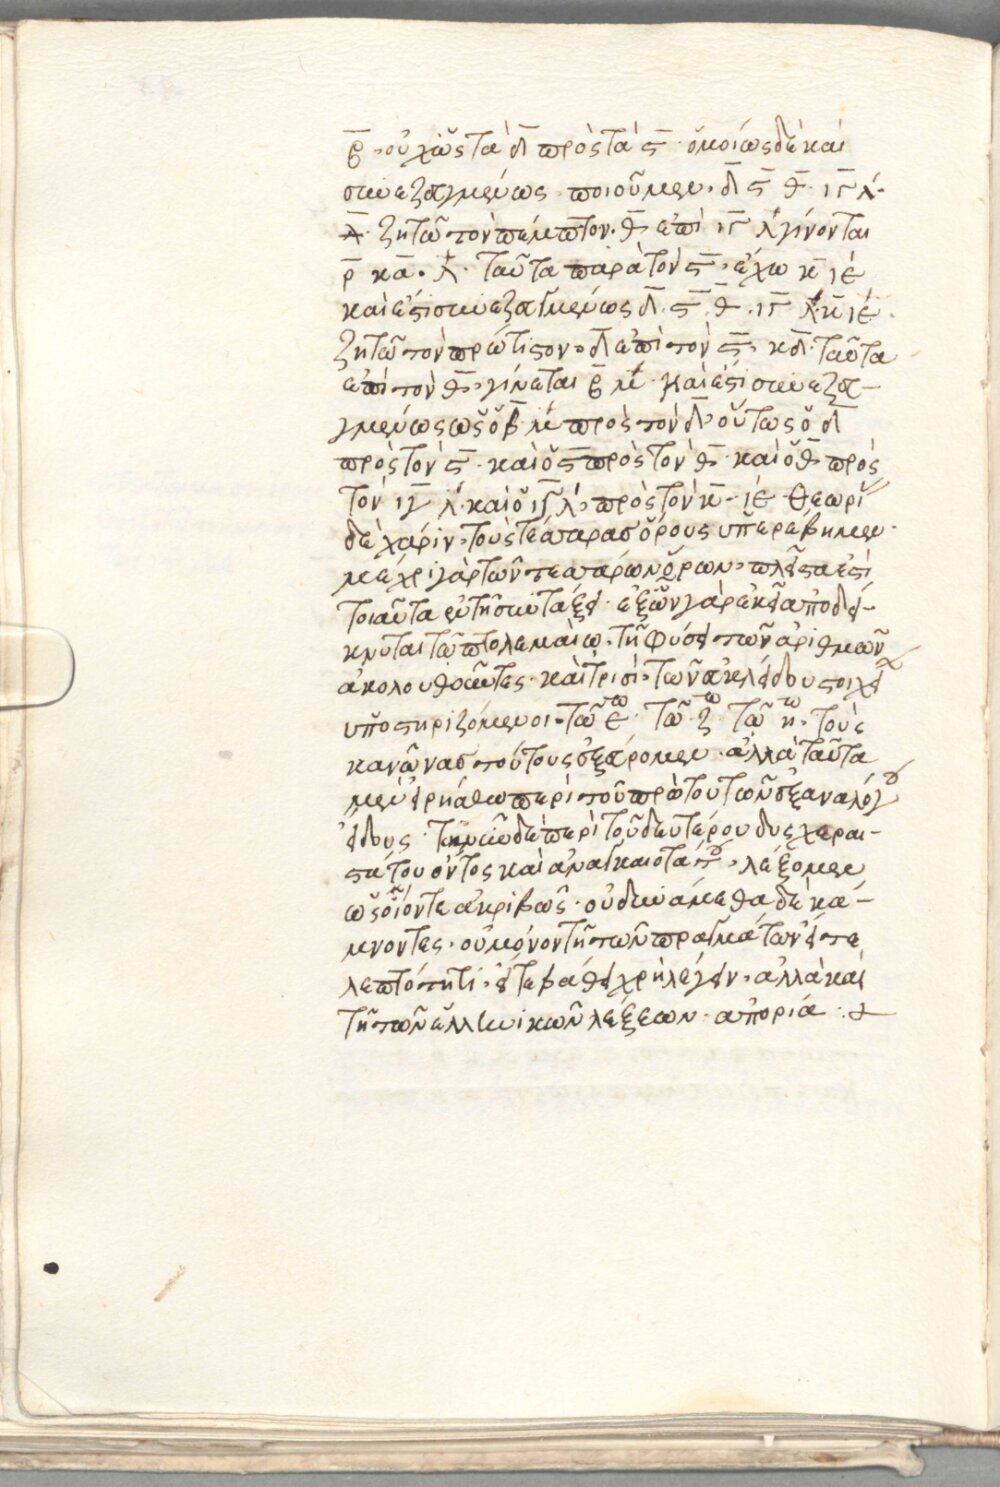 β̅. οὐχ ὡς τὰ δ̅ πρὸς τὰ ς̅. ὁμοίως δὲ καὶ
συνεζευγμένως ποιοῦμεν. δ̅ ς̅ θ̅. ιγ̅ λ̅.
ζητῶ τὸν πέμπτον. θ̅ ἐπὶ ιγ̅ λ̅ γίνονται
ρ̅ κα̅. λ̅. ταῦτα παρὰ τὸν ς̅. ἔχω κ̅ ιε̅
καὶ ἐστὶ συνεζευγμένως δ̅. ς̅. θ̅. ιγ̅ λ̅. κ̅ ιε̅.
ζητῶ τὸν πρώτιστον. δ̅ ἐπὶ τὸν ς̅. κδ̅. ταῦτα
ἐπὶ τὸν θ̅. γίνεται β̅ μ̅. καὶ ἐστὶ συνεζευ-
γμένως ὡς ὁ β̅ μ̅ πρὸς τὸν δ̅. οὕτως ὁ δ̅
πρὸς τὸν ς̅. καὶ ὁ ς̅ πρὸς τὸν θ̅. καὶ ὁ θ̅ πρὸς
τὸν ιγ̅ λ̅. καὶ ὁ ιγ̅ λ̅. πρὸς τὸν κ̅. ιε̅ θεωρί
δὲ χάριν. τοὺς τέσσαρας ὅρους ὑπερέβημεν.
μέχρι γὰρ τῶν τεσσάρων ὅρων.
τοιαῦτα ἐν τῇ συντάξει. ἐξ ὧν γὰρ ἐκεῖ ἀποδεί-
κνυται τῷ πτολεμαίῳ. τῇ φύσει τῶν ἀριθμῶν
ἀκολουθοῦντες. καὶ τρισὶ. τῶν εὐκλείδου στοιχεί
ὑποστηριζόμενοι. τῷ ε̅ῳ. τῷ ζῳ. τῷ ηῳ. τοὺς
κανῶνας τούτους εὕρομεν. ἀλλὰ ταῦτα
μὲν εἰρήσθω περὶ τοῦ πρώτου τῶν ἐξαναλόγ
εἴδους. τὴν δὲ περὶ τοῦ δευτέρου δυσχεραι-
τάτου ὄντος καὶ ἀναγκαιοτάτου. λέξομεν
ὡς οἷόν τε ἀκριβῶς. οὐ δυνάμεθα δὲ κά-
μνοντες. οὐ μόνον τῇ τῶν πραγμάτων εἴτε
λεπτότητι. εἴτε βάθει χρὴ λέγειν. ἀλλὰ καὶ
τῇ τῶν ἑλληνικῶν λέξεων. ἀπορίᾳ .